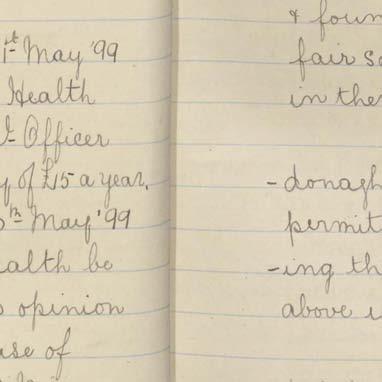 1st May '99
Health
Officer
of £15 a year.
May '99
alth be
opinion
use of
& foun
fair s
in the
- donagh
permit
-ing th
above i